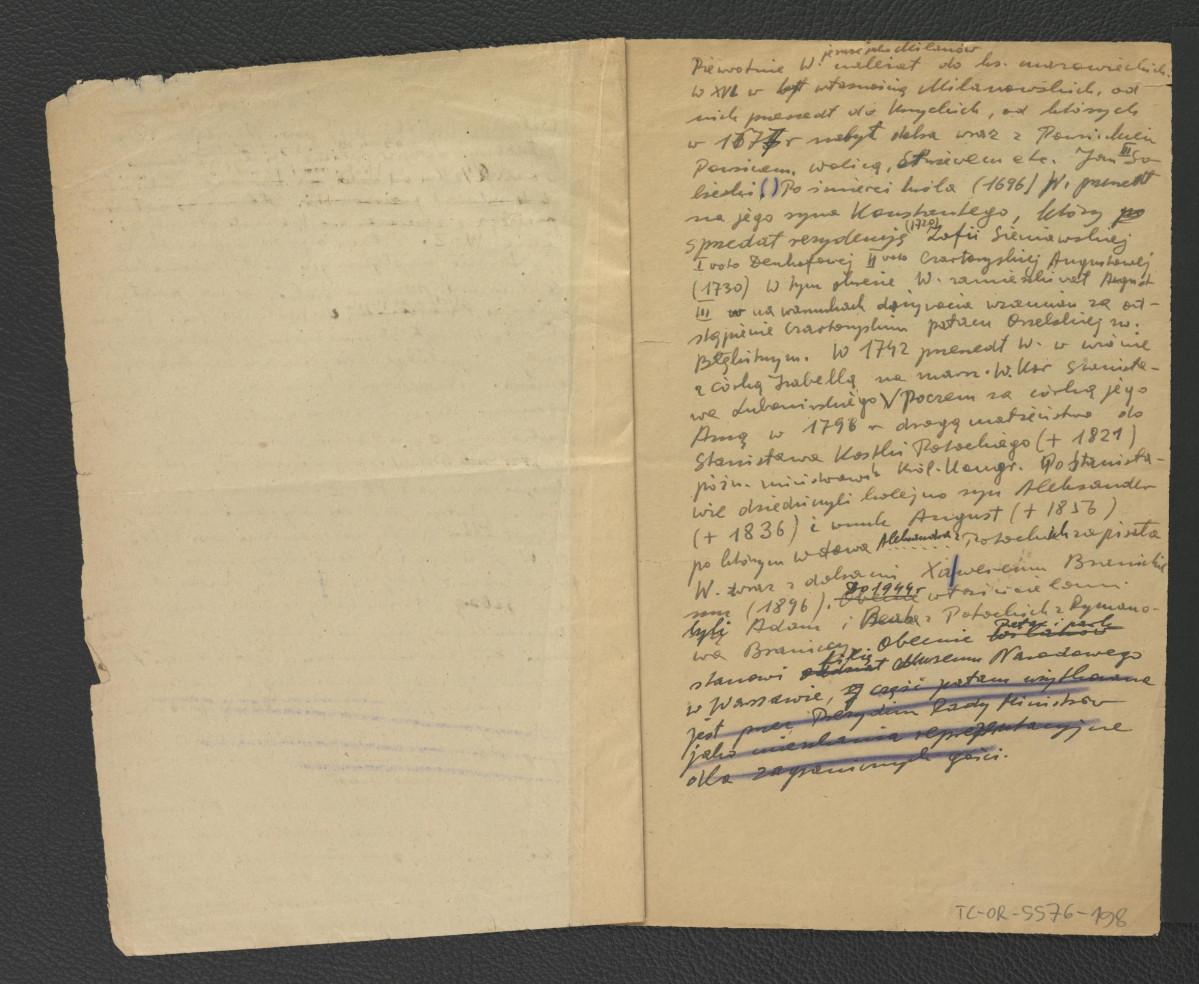 jeszcze jako Milanów
Pierwotnie W. należał do ks. mazowieckich.
w XVI w był własnością Milanowskich, od
nich przeszedł do Krzyckich, od których
w 1677 r nabył dobra wraz z Powsinkiem
Powsinem, wolicą, etc. Jan III So-
bieski () Po śmierci króla (1696) W. przeszedł
na jego syna Konstantego, który
sprzedał rezydencję (1720) Zofii Sieniawskiej
I voto Denhofowej II voto Czartoryskiej Augustowej
(1730) W tym okresie W. zamieszkiwał August
III na warunkach dożywocia wzamian za od-
stąpienie Czartoryskim pałacu Orzelskiej zw.
Błękitnym. W 1742 przeszedł W. w wianie
z córką Izabellą na marsz. W. Kor Stanisła-
wa Lubomirskiego V Poczem za córką jego
Anną w 1798 r drogą małżeństwa do
Stanisława Kostki Potockiego (+ 1821)
późn. ministrowi Król. Kongr. Po Stanisła-
wie dziedziczyli kolejno syn Aleksander
(+ 1836) i wnuk August (+ 1856)
po którym wdowa Aleksandra z Potockich zapisała
W. wraz z dobrami Xaweremu Branickie
mu (1896). Obecnie do 1944 r właścicielami
byli Adam i Beata z Potockich z Rymano-
wa Braniccy. Obecnie Pałac i park
stanowi oddział filię Muzeum Narodowego
w Warszawie, część pałacu użytkowana
jest przez Prezydium Rady Ministrów
jako mieszkania reprezentacyjne
dla zagranicznych gości.
TC-OR-5576-198